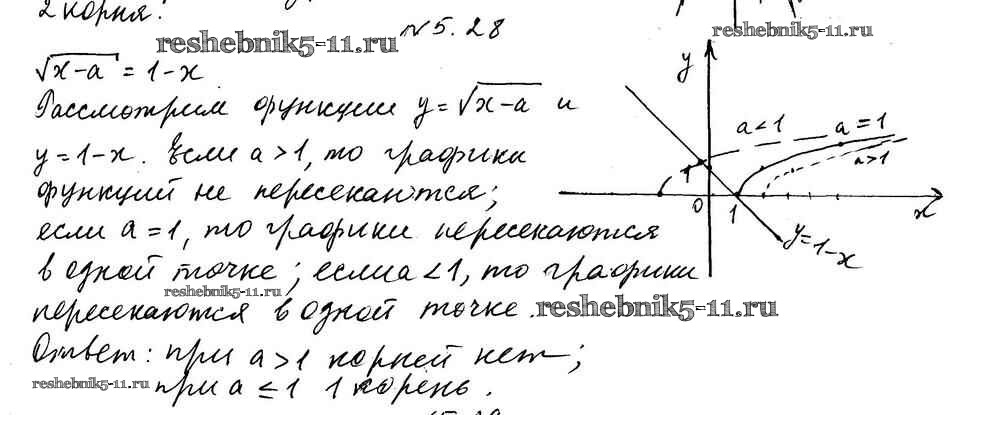 2 корня.
№ 5.28
reshebnik5-11.ru
reshebnik5-11.ru
√x-a = 1-x
Рассмотрим функции y=√x-a и
y=1-x. Если a>1, то графики
функций не пересекаются;
если a=1, то графики пересекаются
в одной точке; если a<1, то графики
reshebnik5-11.ru
пересекаются в одной точке.
reshebnik5-11.ru
Ответ: при a>1 корней нет;
reshebnik5-11.ru
при a≤1 1 корень.
y
a<1
a=1
a>1
1
0
1
x
y=1-x